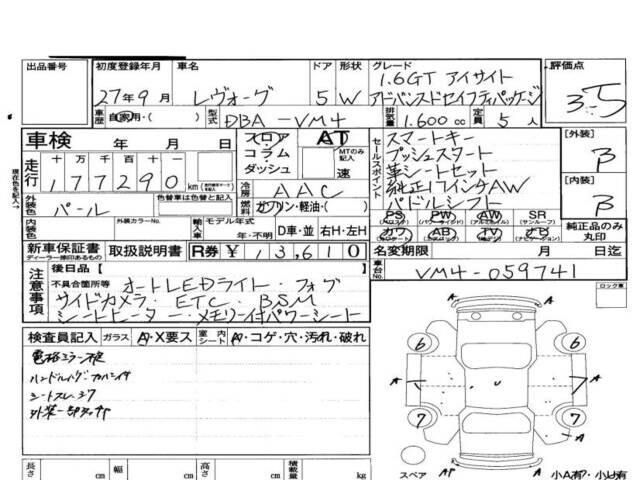 出品番号 初度登録年月 車名 ドア 形状 グレード 評価点
27年9月 レヴォーグ 5 W 1.6GT アイサイト
アドバンスドセイフティパッケージ
車歴 自家用・( ) 型式 DBA-VM4 排気量 1.600cc 定員 5人
車検 年 月 日
フロア
コラム
ダッシュ
AT
MTのみ記入
速
走行 十万 千 百 十
177290 km
冷房 AAC
燃料 ガソリン・軽油・( )
外装色 パール
色替車は色替前の色を記入
内装色 外装カラーNo. 輸入車 モデル年式 年・不明 D車・並 右H・左H
現在色を記入
セールスポイント
スマートキー
プッシュスタート
革シートセット
純正17インチAW
パドルシフト
PS PW AW SR
カワ AB TV ナビ
[外装] B
[内装] B
純正品のみ丸印
新車保証書 取扱説明書 R券 ¥13,610
ディーラー捺印あるもの
名変期限 月 日迄
車台No. VM4-059741
注意事項
後日品 [
不具合箇所等 オートLEDライト・フォグ
サイドカメラ・ETC・BSM
シートヒーター・メモリー付パワーシート
ロック車
検査員記入 ガラス A・X要ス 室内シート A・コゲ・穴・汚れ・破れ
シートスレ
6 6
7 7
A A A A A
U
スペア
小A有 小U有
長さ cm 幅 cm 高さ cm 積載量 kg